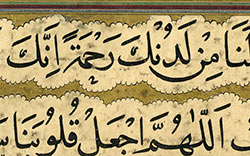 لَنَا مِنْ لَدُنْكَ رَحْمَةً اِنَّكَ
اَللّٰهُمَّ اجْعَلْ قُلُوبَنَا